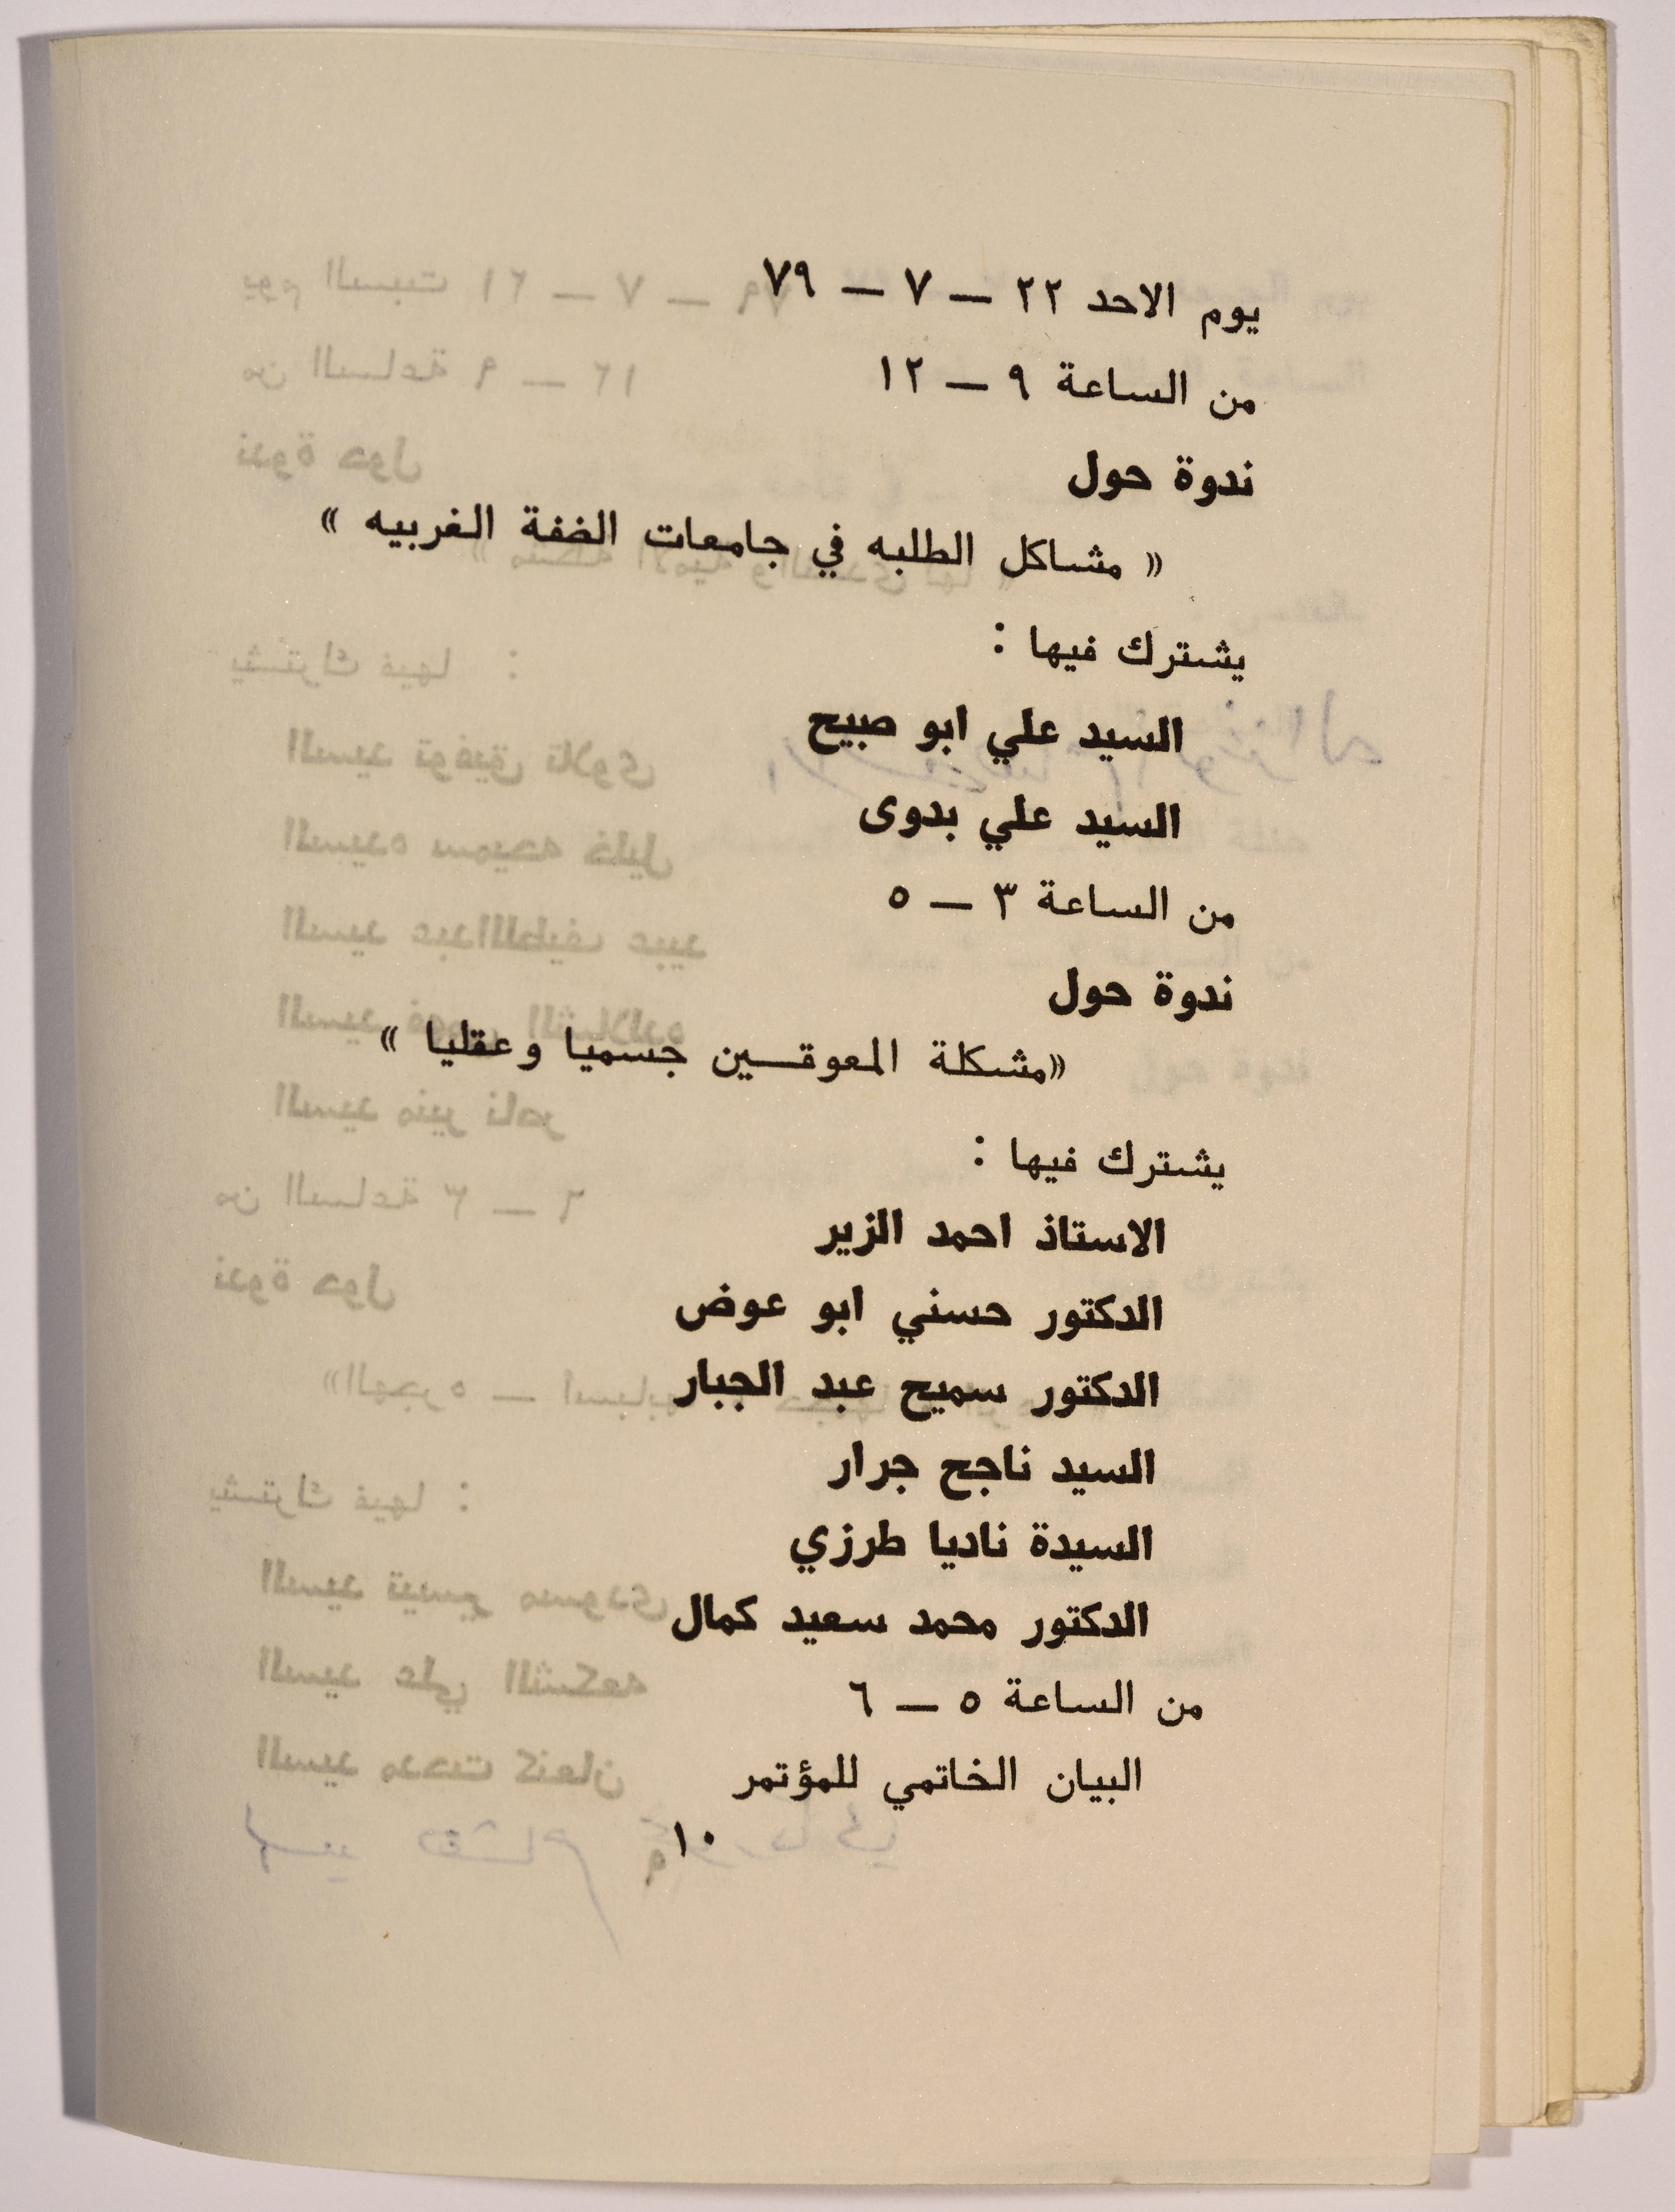 يوم الاحد ٢٢ — ٧ — ٧٩
من الساعة ٩ — ١٢
ندوة حول
« مشاكل الطلبه في جامعات الضفة الغربيه »
يشترك فيها :
السيد علي ابو صبيح
السيد علي بدوى
من الساعة ٣ — ٥
ندوة حول
«مشكلة المعوقـــين جسميا وعقليا »
يشترك فيها :
الاستاذ احمد الزير
الدكتور حسني ابو عوض
الدكتور سميح عبد الجبار
السيد ناجح جرار
السيدة ناديا طرزي
الدكتور محمد سعيد كمال
من الساعة ٥ — ٦
البيان الخاتمي للمؤتمر
١٠